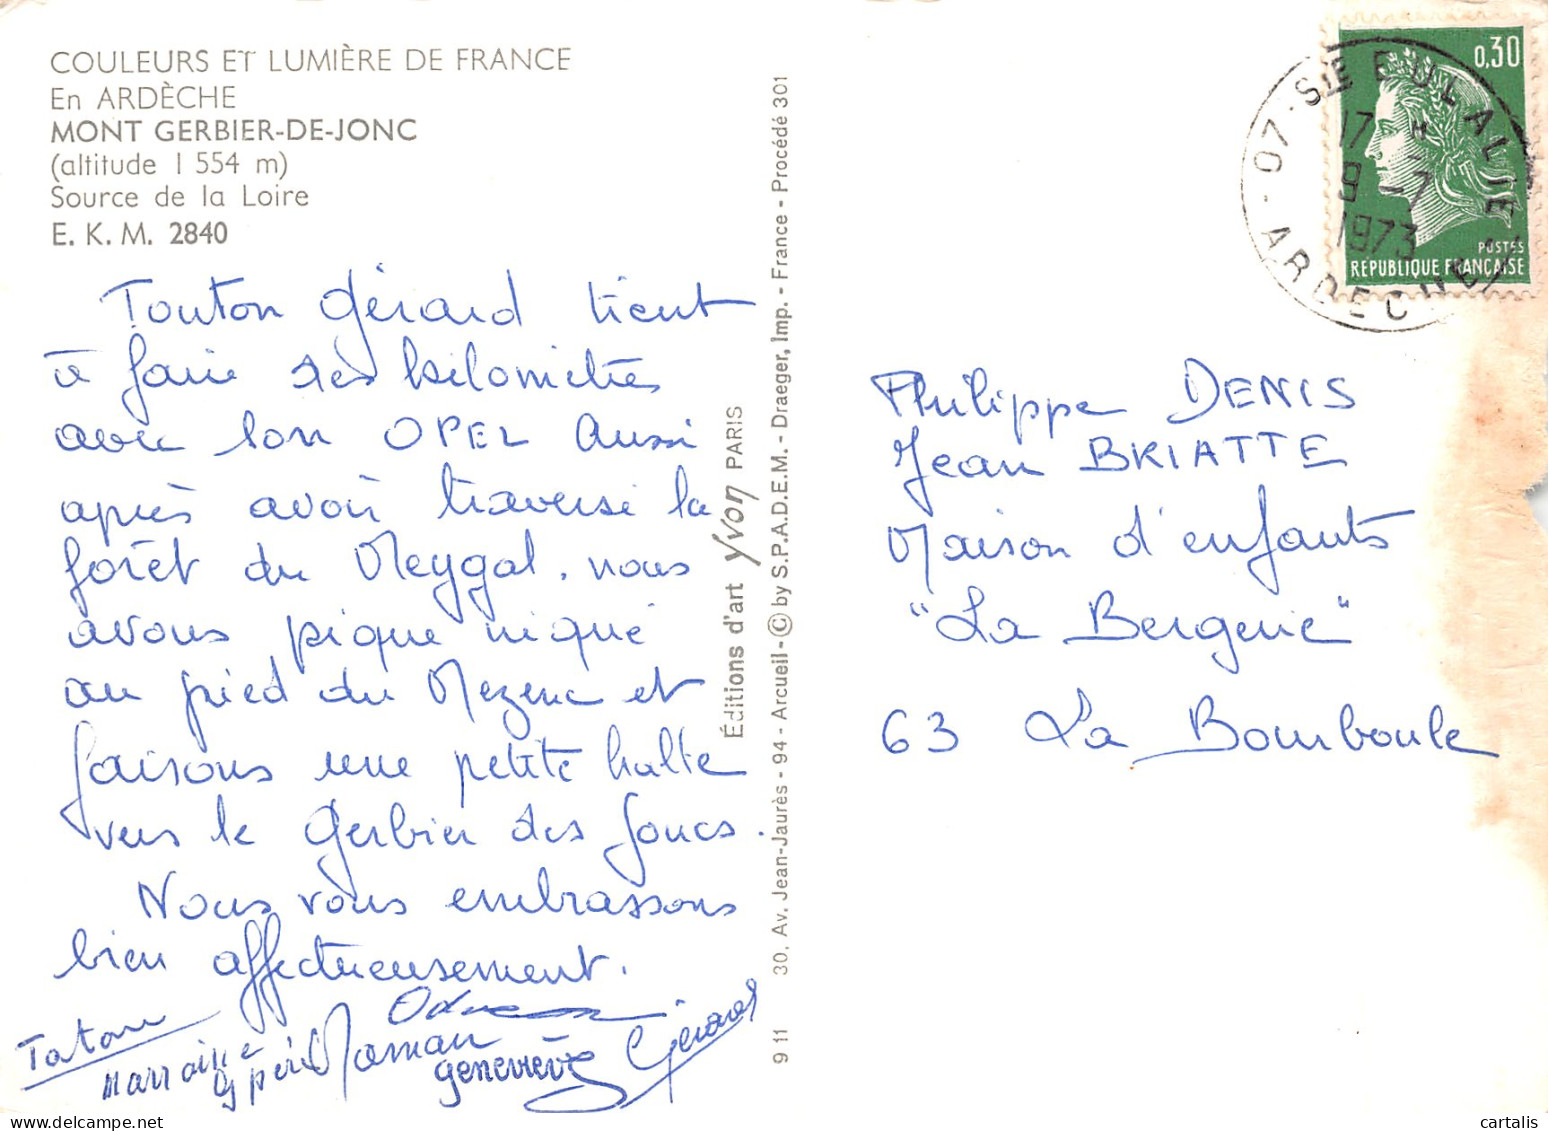 COULEURS ET LUMIÈRE DE FRANCE
En ARDÈCHE
MONT GERBIER-DE-JONC
(altitude 1 554 m)
Source de la Loire
E. K. M. 2840
Tonton Gérard tient
à faire des kilomètres
avec son OPEL Aussi
après avoir traversé la
forêt du Meygal, nous
avons pique niqué
au pied du Mezenc et
faisons une petite halte
vers le Gerbier des Joncs.
Nous vous embrassons
bien affectueusement.
Tatan
Marraine
Maman
geneviève
Gérard
Éditions d'art Yvon PARIS
30, Av. Jean-Jaurès - 94 - Arcueil - © by S.P.A.D.E.M. - Draeger, Imp. - France - Procédé 301
9 11
0,30
POSTES
RÉPUBLIQUE FRANÇAISE
07 - STE EULALIE
17 H
9 -7
1973
ARDECHE
Philippe DENIS
Jean BRIATTE
Maison d'enfants
"La Bergerie"
63 La Bourboule
cartalis